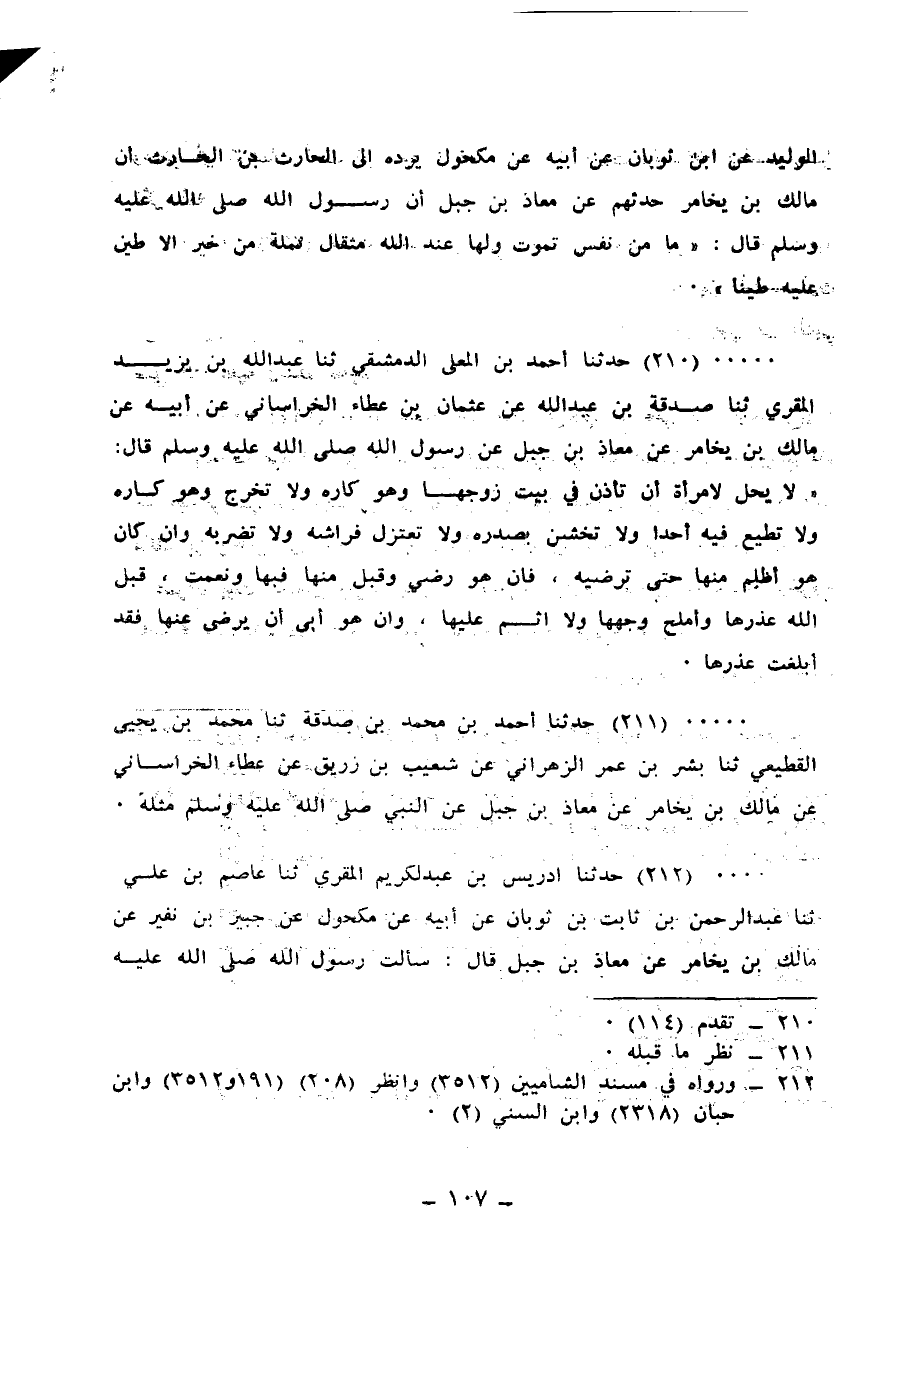 الوليد عن ابن ثوبان عن أبيه عن مكحول يرده الى الحارث بن الحارث أن
مالك بن يخامر حدثهم عن معاذ بن جبل أن رسول الله صلى الله عليه
وسلم قال : « ما من نفس تموت ولها عند الله مثقال نملة من خير الا طين
عليه طينا » ٠
٠٠٠٠٠ (٢١٠) حدثنا أحمد بن المعلى الدمشقي ثنا عبدالله بن يزيد
المقري ثنا صدقة بن عبدالله عن عثمان بن عطاء الخراساني عن أبيه عن
مالك بن يخامر عن معاذ بن جبل عن رسول الله صلى الله عليه وسلم قال:
« لا يحل لامرأة أن تأذن في بيت زوجها وهو كاره ولا تخرج وهو كاره
ولا تطيع فيه أحدا ولا تخشن بصدره ولا تعتزل فراشه ولا تضربه وان كان
هو أظلم منها حتى ترضيه ، فان هو رضي وقبل منها فبها ونعمت ، قبل
الله عذرها وأملح وجهها ولا اثم عليها ، وان هو أبى أن يرضى عنها فقد
أبلغت عذرها ٠
٠٠٠٠٠ (٢١١) حدثنا أحمد بن محمد بن صدقة ثنا محمد بن يحيى
القطيعي ثنا بشر بن عمر الزهراني عن شعيب بن زريق عن عطاء الخراساني
عن مالك بن يخامر عن معاذ بن جبل عن النبي صلى الله عليه وسلم مثلة ٠
٠٠٠٠ (٢١٢) حدثنا ادريس بن عبدلكريم المقري ثنا عاصم بن علي
ثنا عبدالرحمن بن ثابت بن ثوبان عن أبيه عن مكحول عن جبير بن نفير عن
مالك بن يخامر عن معاذ بن جبل قال : سألت رسول الله صلى الله عليه
٢١٠ ــ تقدم (١١٤) ٠
٢١١ ــ نظر ما قبله ٠
٢١٢ ــ ورواه في مسند الشاميين (٣٥١٢) وانظر (٢٠٨) (١٩١و٣٥١٢) وابن
حبان (٢٣١٨) وابن السني (٢) ٠
ــ ١٠٧ ــ